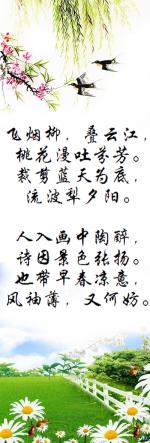 飞烟柳，叠云江，
桃花漫吐芬芳。
裁剪蓝天为底，
流波犁夕阳。
人入画中陶醉，
诗因景色张扬。
也带早春凉意，
风袖薄，又何妨。